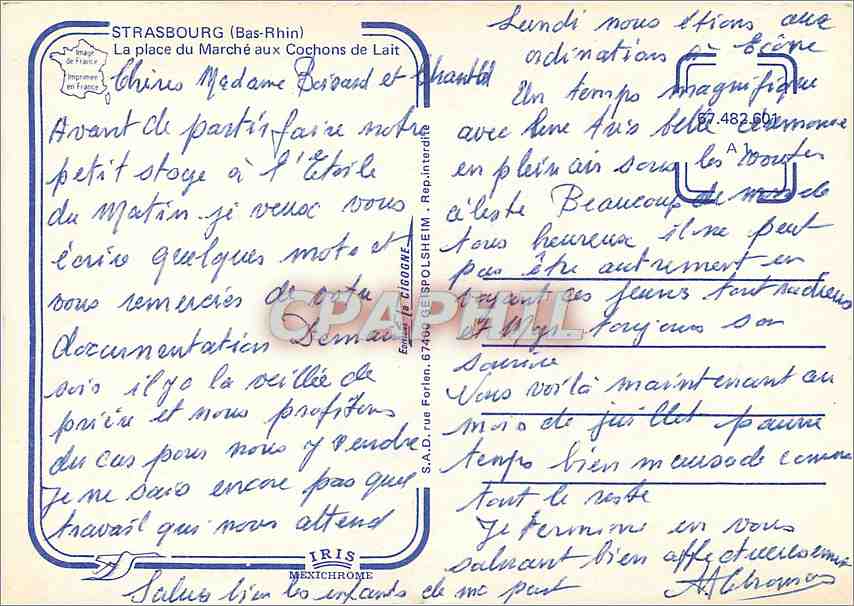 STRASBOURG (Bas-Rhin)
La place du Marché aux Cochons de Lait
Image de France
Imprimé en France
Chères Madame Bernard et Chantal
Avant de partir faire notre
petit stage à l'Etoile
du Matin je veux vous
écrire quelques mots et
vous remercier de votre
documentation Demain
soir il y a la veillée de
prière et nous profitons
du cas pour nous y rendre
Je ne sais encore pas quel
travail qui nous attend
Lundi nous étions aux
ordinations à Ecône
Un temps magnifique
avec une très belle cérémonie
en plein air sous les voutes
céleste Beaucoup de monde
tous heureux il ne peut
pas être autrement en
voyant ces jeunes tout radieux
et Mgr toujours son
sourire
Nous voilà maintenant au
mois de juillet pauvre
temps bien maussade comme
tout le reste
Je termine en vous
saluant bien affectueusement
Saluez bien les enfants de ma part
67.482.601
A 1
Editions la CIGOGNE
S.A.D. rue Forlen. 67400 GEISPOLSHEIM - Rep. interdite
IRIS
MEXICHROME
CPAPHIL